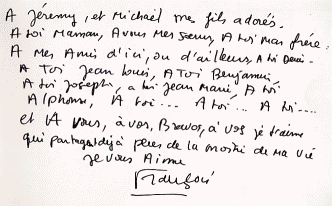 A Jérémy, et Michaël mes fils adorés.
A toi Maman, A vous Mes Sœurs, A toi Mon frère.
A Mes Amis d'ici, ou d'ailleurs, A toi Denis.
A Toi Jean Louis, A Toi Benjamin,
A toi Joseph, a toi Jean Marie, A toi
Alphonse, A toi... A toi... A toi....
et A Vous, à vos, Bravos, à vos je t'aime
qui partagez déjà de la moitié de ma vie
je vous Aime